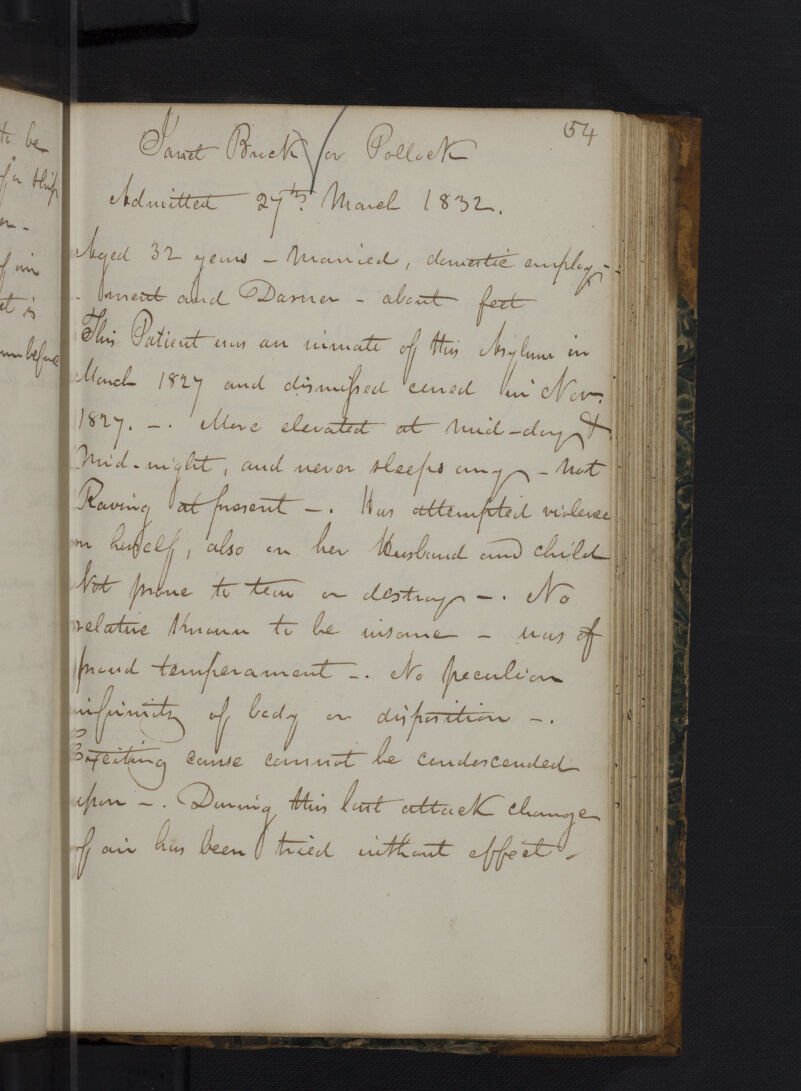 54
Janet Brick or Pollock
Admitted 27th March 1832.
Aged 32 years - Married, domestic employ-
-ment and Darner - about feet
This Patient was an inmate of this Asylum in
March 1827 and dismissed cured in Nov.
1827. -. More elevated at mid-day &
Mid-night, and never sleeps any - Not
Raving at present -. Has attempted violence
on herself, also on her Husband and child
Not prone to tear or destroy -. No
relative known to be insane - was of
proud temperament -. No peculiar
infirmity of body or disposition -.
Exciting cause cannot be condescended
upon -. During this last attack change
of air has been tried without effect -
to be
of a
ship
of air
it is
before